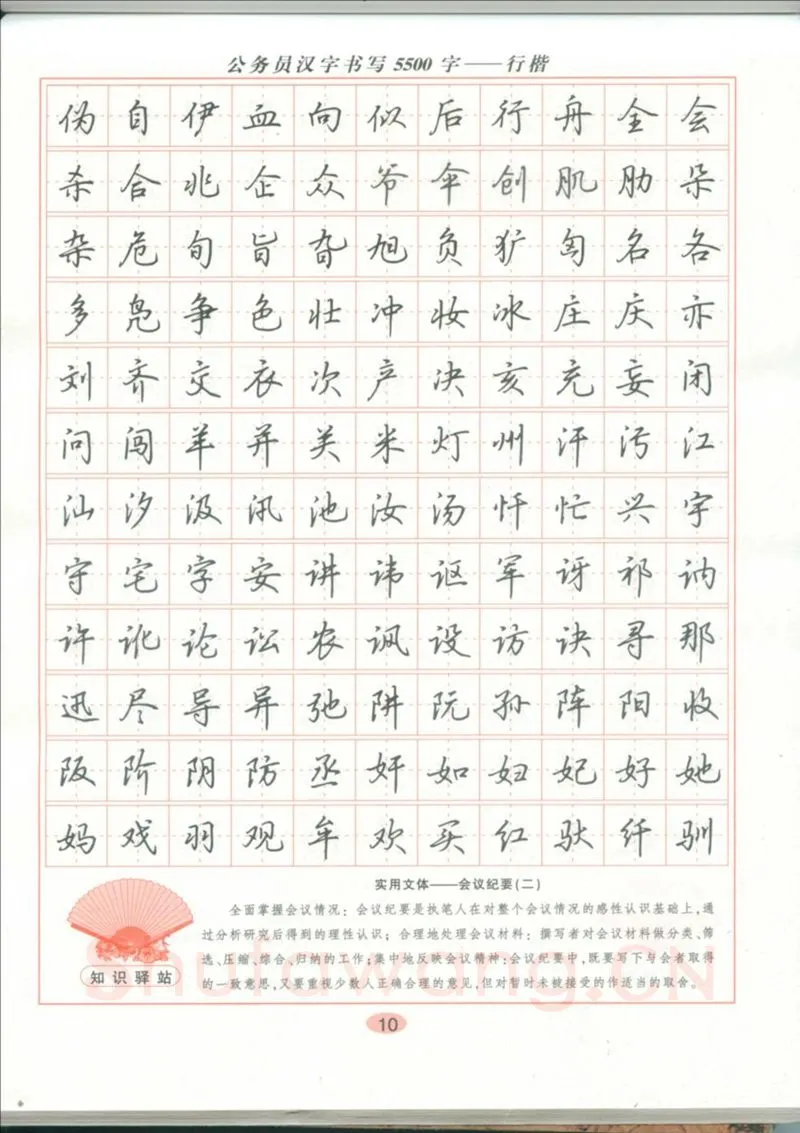 公务员汉字书写5500字——行楷
伪自伊血向似后行舟全会
杀合兆企众爷伞创肌肋朵
杂危旬旨旮旭负犷匈名各
多凫争色壮冲妆冰庄庆亦
刘齐交衣次产决亥充妄闭
问闯羊并关米灯州汗污江
汕汐汲汛池汝汤忏忙兴宇
守宅字安讲讳讴军讶祁讷
许讹论讼农讽设访诀寻那
迅尽导异弛阱阮孙阵阳收
阪阶阴防丞奸如妇妃好她
妈戏羽观牟欢买红驮纤驯
实用文体——会议纪要(二)
全面掌握会议情况：会议纪要是执笔人在对整个会议情况的感性认识基础上,通
过分析研究后得到的理性认识；合理地处理会议材料：撰写者对会议材料做分类、筛
选、压缩、综合、归纳的工作;集中地反映会议精神:会议纪要中,既要写下与会者取得
的一致意思,又要重视少数人正确合理的意见,但对暂时未被接受的作适当的取舍。
知识驿站
shufawang.CN
10